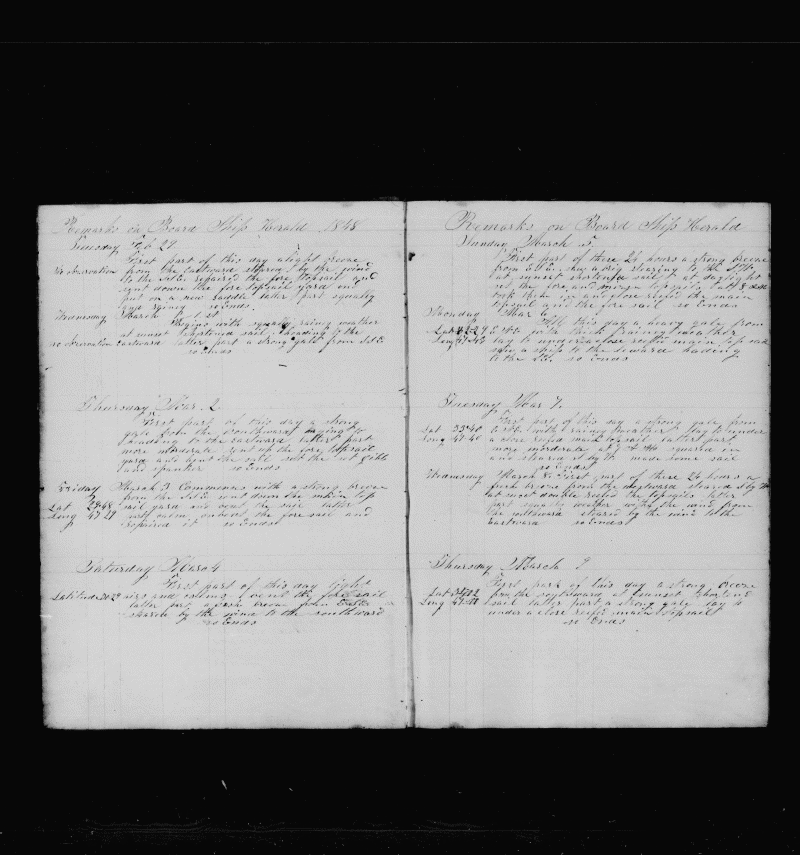 Remarks on Board Ship Herald 1848
Tuesday Feb 29
First part of this day a light breeze
No observation from the Eastward steared by the wind
to the S.E. repaired the fore topsail and
sent down the fore topsail yard and
put on a new saddle latter part squally
and rainy so Ends.
Wednesday March 1st
Begins with squally rainy weather
at sunset shortened sail heading to the
no observation eastward latter part a strong gale from
so Ends
Thursday Mar 2
First part of this day a strong
gale from the Southward laying to
heading to the eastward latter part
more moderate sent up the fore topsail
yard and bent the sail set the jibb
and spanker so Ends
Friday March 3 Commences with a strong breeze
from the sent down the main top
Lat sail yard and bent the sail latter
Long 47-29 part calm unbent the fore sail and
repaired it so Ends
Saturday Mar 4
First part of this day light
Latitude airs and calms bent the fore sail
latter part a fresh breeze from
steared by the wind to the southward
so Ends
Remarks on Board Ship Herald
Sunday March 5
First part of these 24 hours a strong breeze
from saw a brig stearing to the
at sunset shortened sail at daylight
set the fore and mizen topsails
took them in and close reefed the main
topsail and the fore sail so Ends
Monday Mar 6
this day a heavy gale from
Lat with thick rainy weather
Long lay to under a close reefed main top sail
saw a ship to the leeward heading
to the so Ends
Tuesday Mar 7
First part of this day a strong gale from
Lat 33-40 with rainy weather lay to under
Long 47-40 a close reefed main topsail latter part
more moderate at squared in
and steared made some sail
so Ends
Wednesday March 8 First part of these 24 hours a
fresh breeze from the westward steared by the
at double reefed the topsails latter
part squally weather with the wind from
the southward steared by the wind to the
eastward so Ends
Thursday March 9
First part of this day a strong breeze
Lat from the southward at sunset shortened
Long sail latter part a strong gale lay to
under a close reefed main topsail
so Ends